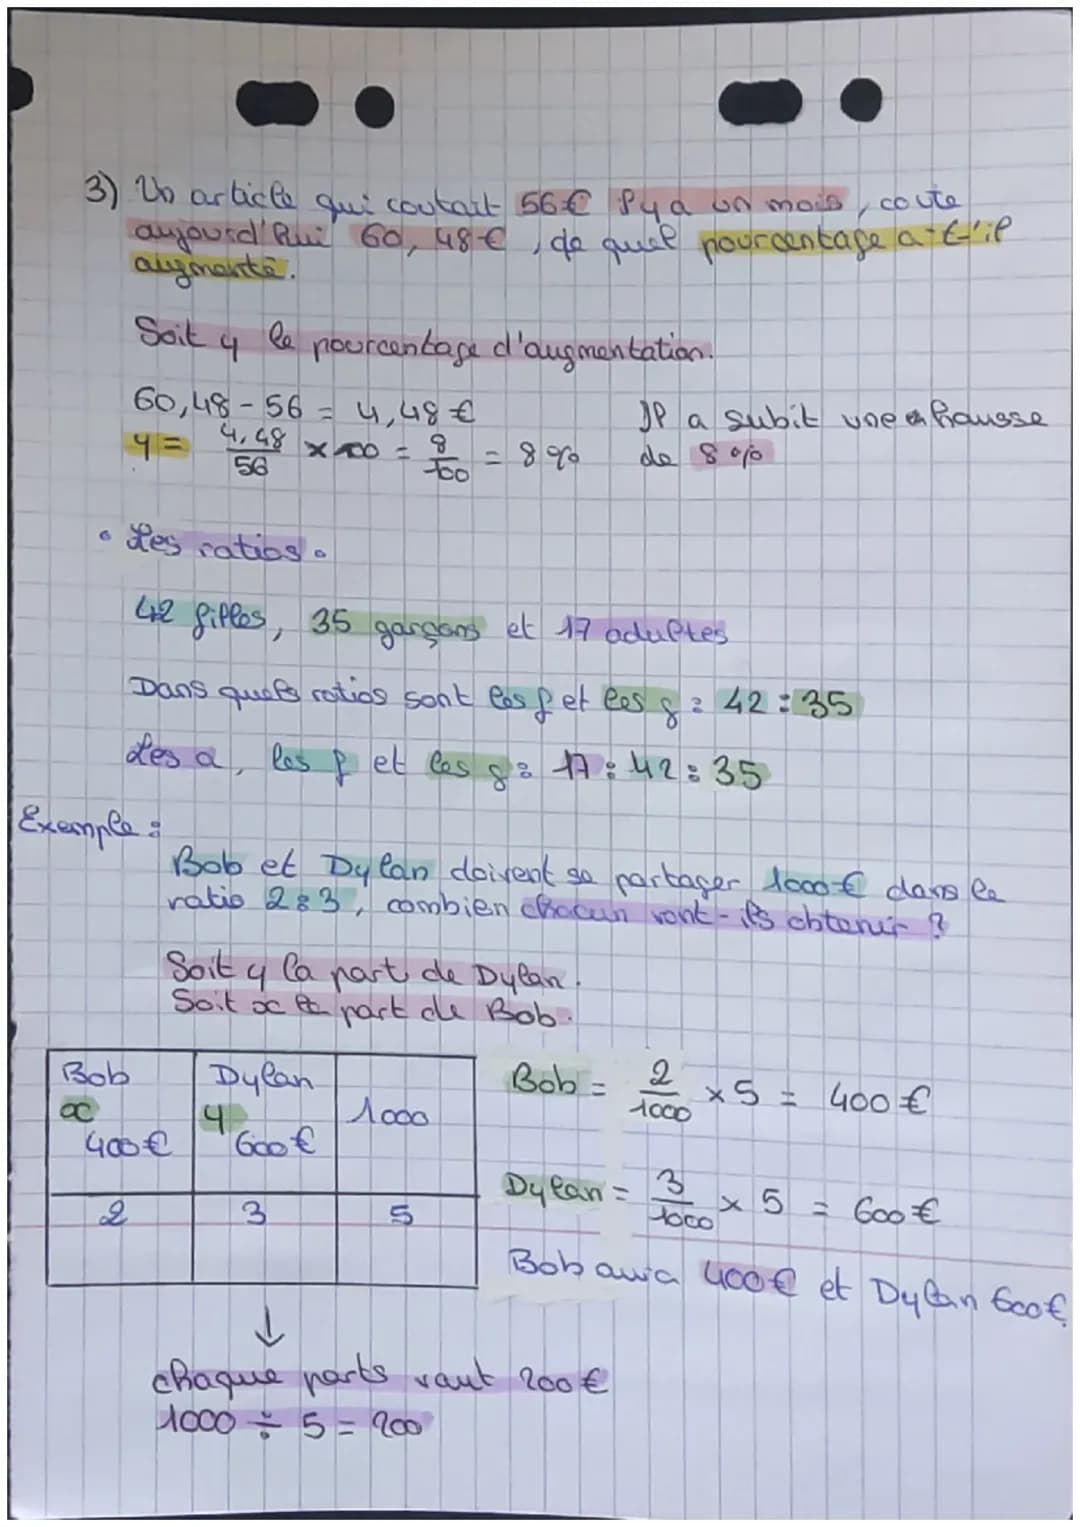 3) Un article qui coutait 56€ il y a un mois, coute
aujourd'hui 60,48€, de quel pourcentage a-t-il
augmenté.
Soit y le pourcentage d'augmentation.
60,48 - 56 = 4,48 €
y = 4,48/56 × 100 = 8/100 = 8 %
Il a subit une hausse
de 8 %
• Les ratios •
42 filles, 35 garçons et 17 adultes
Dans quels ratios sont les f et les g : 42 : 35
Les a, les f et les g : 17 : 42 : 35
Exemple :
Bob et Dylan doivent se partager 1000€ dans le
ratio 2:3, combien chacun vont-ils obtenir ?
Soit y la part de Dylan.
Soit x la part de Bob.
Bob Dylan
x y 1000
400€ 600€
2 3 5
Bob = 2/1000 × 5 = 400 €
Dylan = 3/1000 × 5 = 600 €
Bob aura 400€ et Dylan 600€.
↓
chaque parts vaut 200€
1000 ÷ 5 = 200